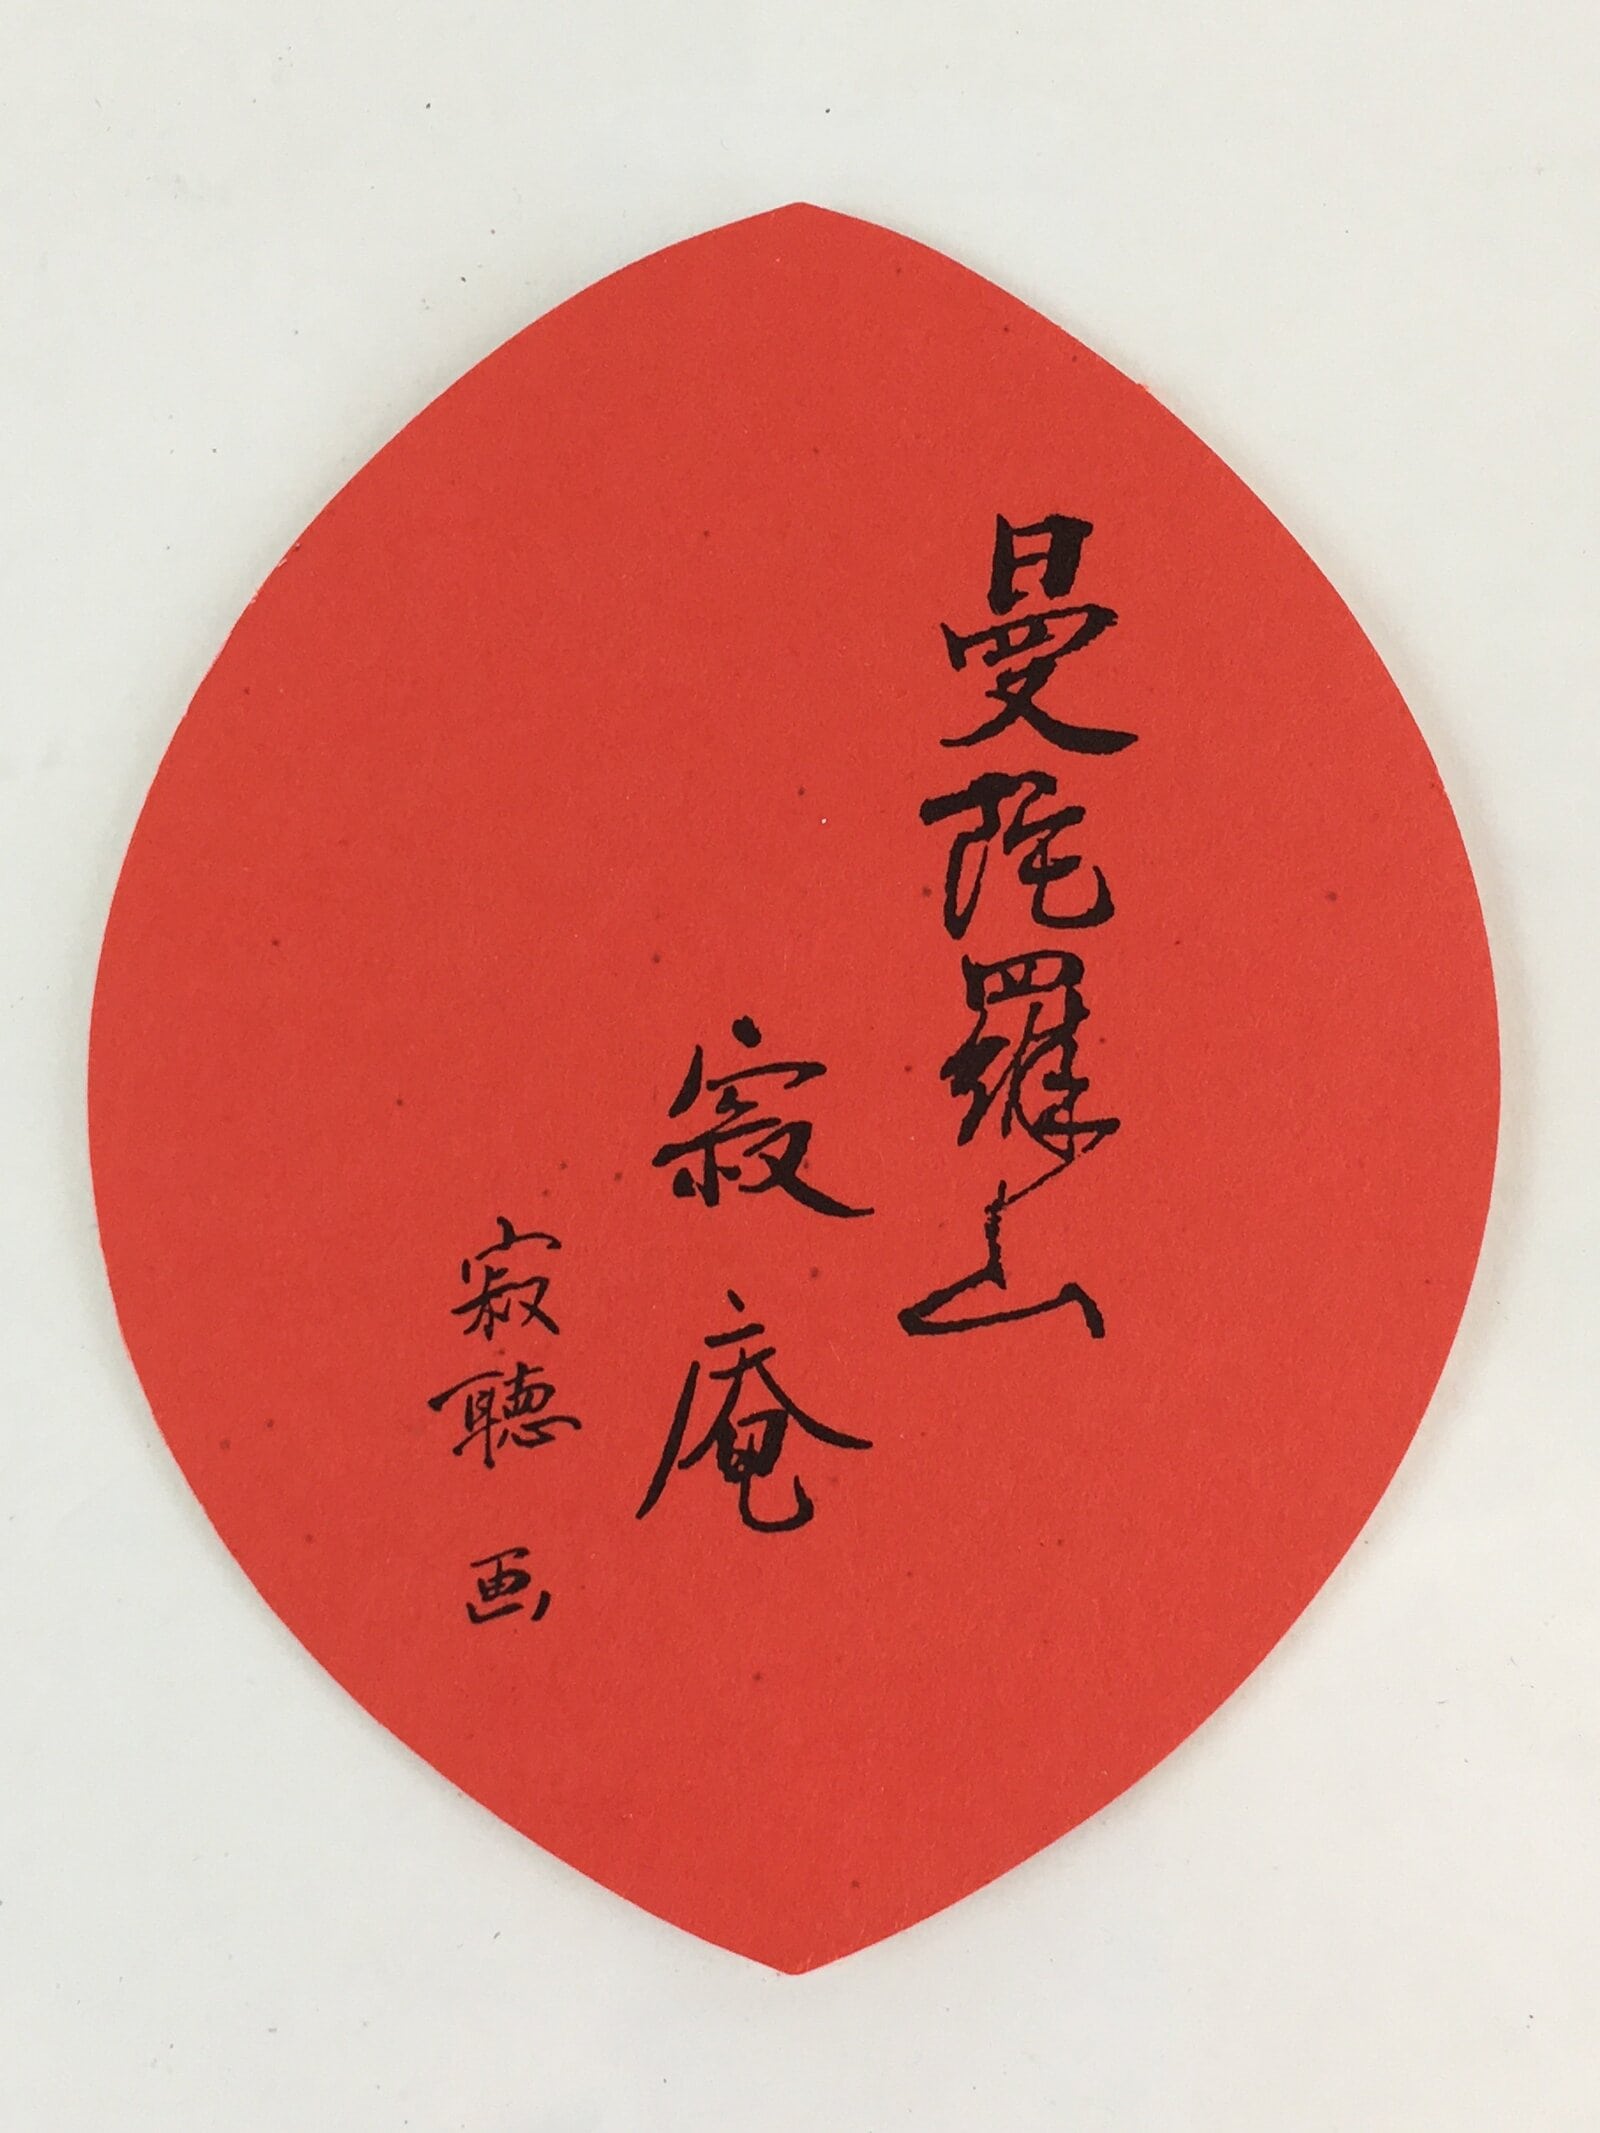 曼陀羅山
寂庵
寂聴 画